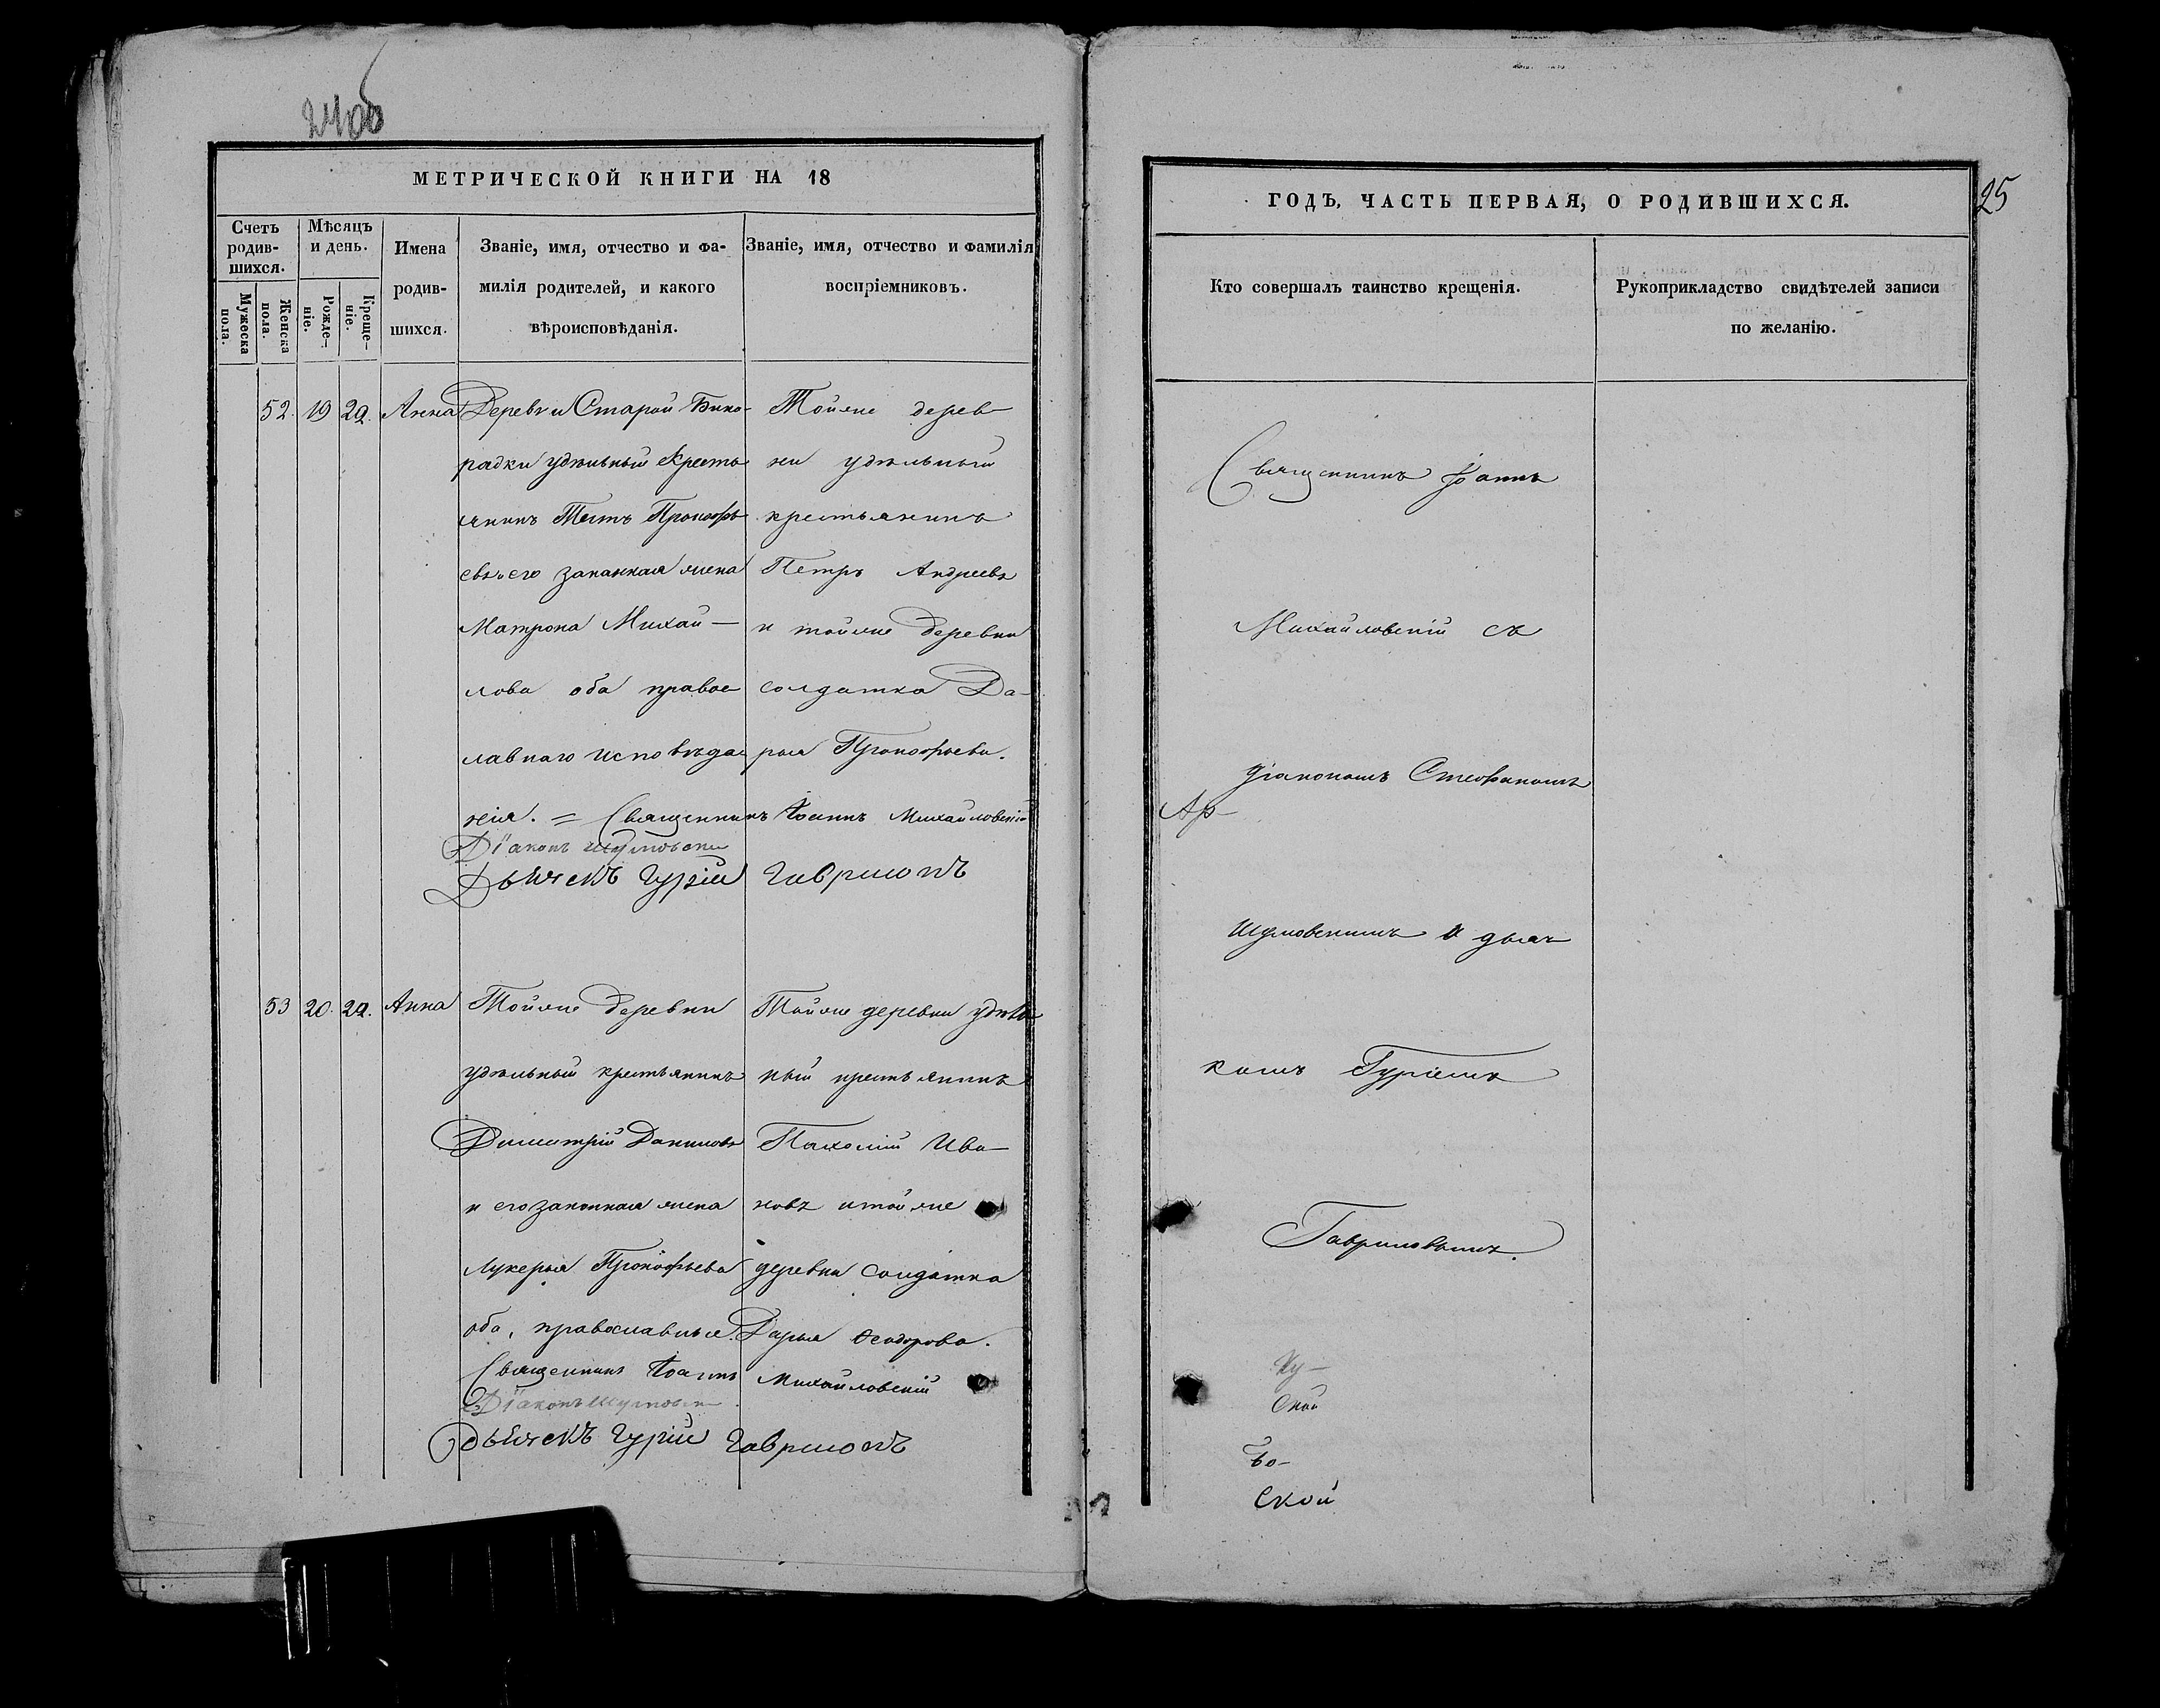 24об
МЕТРИЧЕСКОЙ КНИГИ НА 18
Счетъ родив-шихся.
Мѣсяцъ и день.
Мужеска пола.
Женска пола.
Рожде-ніе.
Креще-ніе.
Имена родив-шихся.
Званіе, имя, отчество и фа-
милія родителей, и какого
вѣроисповѣданія.
Званіе, имя, отчество и фамилія
воспріемниковъ.
52. 19 29. Анна
Деревни Старой
радки удѣльный Кресть
янинъ Титъ Прокофь
евъ и его законная жена
Матрона Михай—
лова оба правос
лавнаго исповѣда
нія. = Священникъ Іоаннъ Михайловскій
Діаконъ Шумовски
Дьячекъ Гурій Гавриловъ
Тойже дерев—
ни удѣльный
крестьянинъ
Петръ Андреевъ
и тойже деревни
солдатка Да—
рья Прокофьева.
53 20. 29. Анна
Тойже деревни
удѣльный крестьянинъ
Димитрій Даниловъ
и его законная жена
Лукерья Прокофьева
оба, православные.
Священникъ Іоаннъ Михайловскій
Діаконъ Шумовски
Дьячекъ Гурій Гавриловъ
Тойже деревни удѣль
ный крестьянинъ
Пахомій Ива—
новъ и тойже
деревни солдатка
Дарья Ѳеодорова.
ГОДЪ, ЧАСТЬ ПЕРВАЯ, О РОДИВШИХСЯ.
25
Кто совершалъ таинство крещенія.
Рукоприкладство свидѣтелей записи
по желанію.
Священникъ Іоаннъ
Михайловскій съ
діакономъ Стефаномъ
Ар—
Шумовскимъ и дьяч
комъ Гуріемъ
Гавриловымъ.
ской
ской